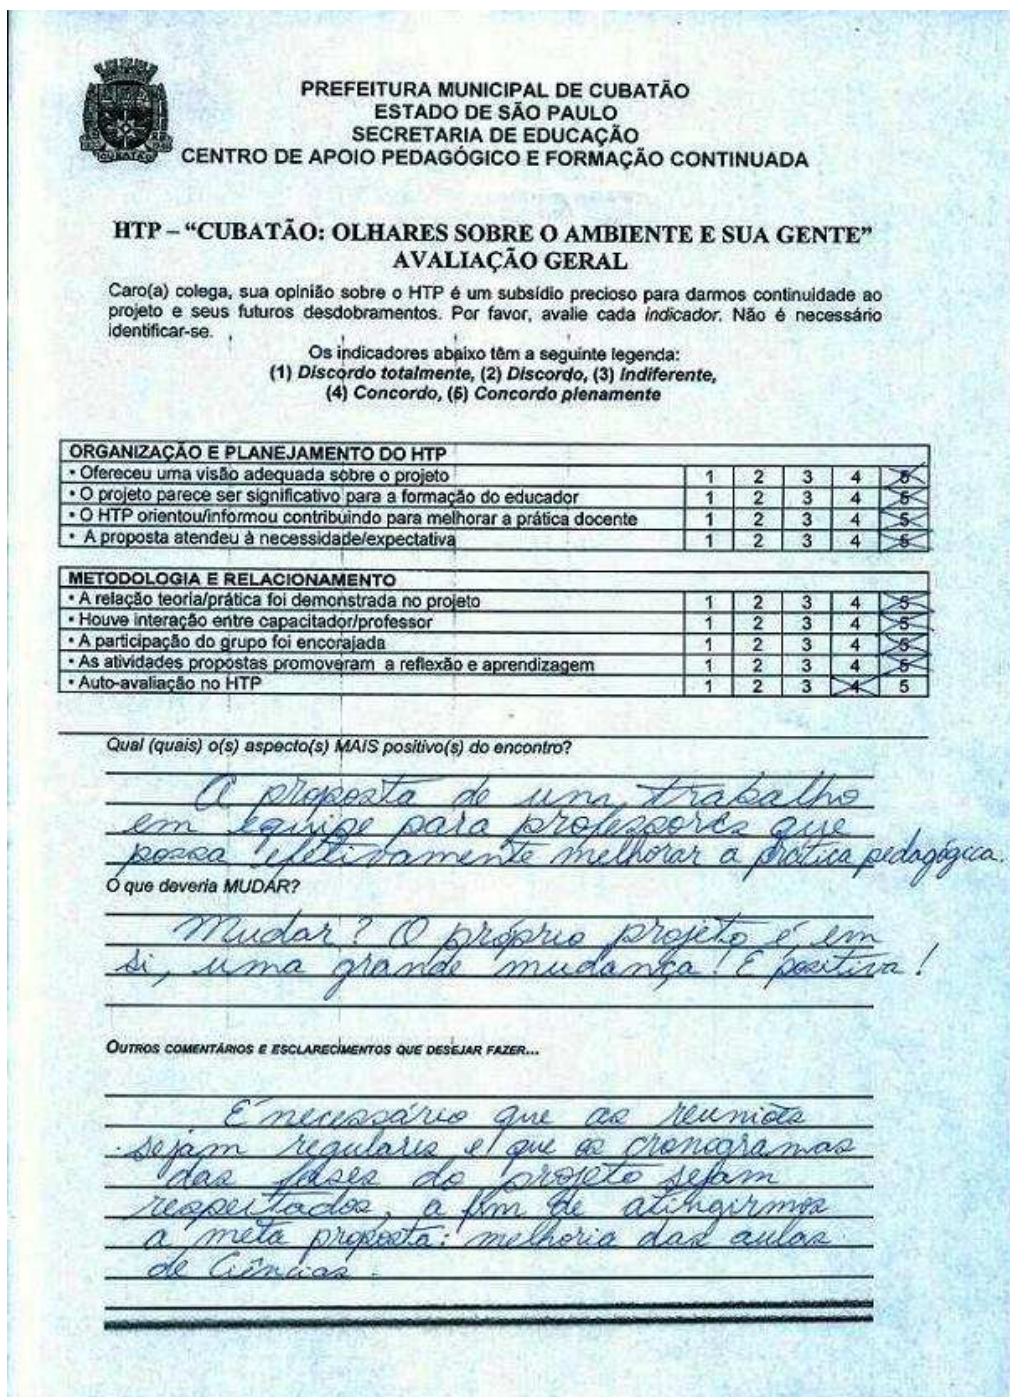 CUBATÃO
PREFEITURA MUNICIPAL DE CUBATÃO
ESTADO DE SÃO PAULO
SECRETARIA DE EDUCAÇÃO
CENTRO DE APOIO PEDAGÓGICO E FORMAÇÃO CONTINUADA
HTP – “CUBATÃO: OLHARES SOBRE O AMBIENTE E SUA GENTE”
AVALIAÇÃO GERAL
Caro(a) colega, sua opinião sobre o HTP é um subsídio precioso para darmos continuidade ao
projeto e seus futuros desdobramentos. Por favor, avalie cada indicador. Não é necessário
identificar-se.
Os indicadores abaixo têm a seguinte legenda:
(1) Discordo totalmente, (2) Discordo, (3) Indiferente,
(4) Concordo, (5) Concordo plenamente
ORGANIZAÇÃO E PLANEJAMENTO DO HTP
• Ofereceu uma visão adequada sobre o projeto 1 2 3 4 5
• O projeto parece ser significativo para a formação do educador 1 2 3 4 5
• O HTP orientou/informou contribuindo para melhorar a prática docente 1 2 3 4 5
• A proposta atendeu à necessidade/expectativa 1 2 3 4 5
METODOLOGIA E RELACIONAMENTO
• A relação teoria/prática foi demonstrada no projeto 1 2 3 4 5
• Houve interação entre capacitador/professor 1 2 3 4 5
• A participação do grupo foi encorajada 1 2 3 4 5
• As atividades propostas promoveram a reflexão e aprendizagem 1 2 3 4 5
• Auto-avaliação no HTP 1 2 3 4 5
Qual (quais) o(s) aspecto(s) MAIS positivo(s) do encontro?
A proposta de um trabalho
em equipe para professores que
possa efetivamente melhorar a prática pedagógica.
O que deveria MUDAR?
Mudar? O próprio projeto é em
si, uma grande mudança! E positiva!
OUTROS COMENTÁRIOS E ESCLARECIMENTOS QUE DESEJAR FAZER...
É necessário que as reuniões
sejam regulares e que os cronogramas
das fases do projeto sejam
respeitados, a fim de atingirmos
a meta proposta: melhoria das aulas
de Ciências.